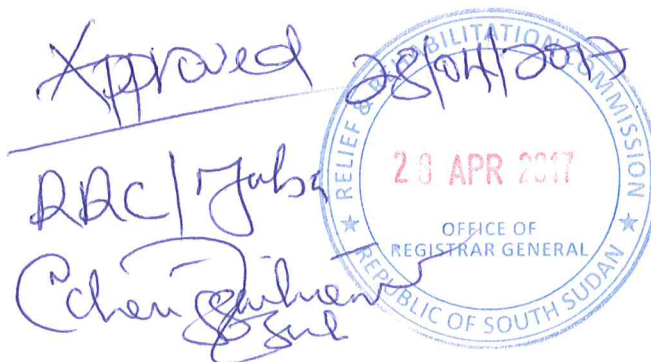 Approved 28/04/2017
RELIEF & REHABILITATION COMMISSION
RRC/Juba
28 APR 2017
OFFICE OF
REGISTRAR GENERAL
REPUBLIC OF SOUTH SUDAN